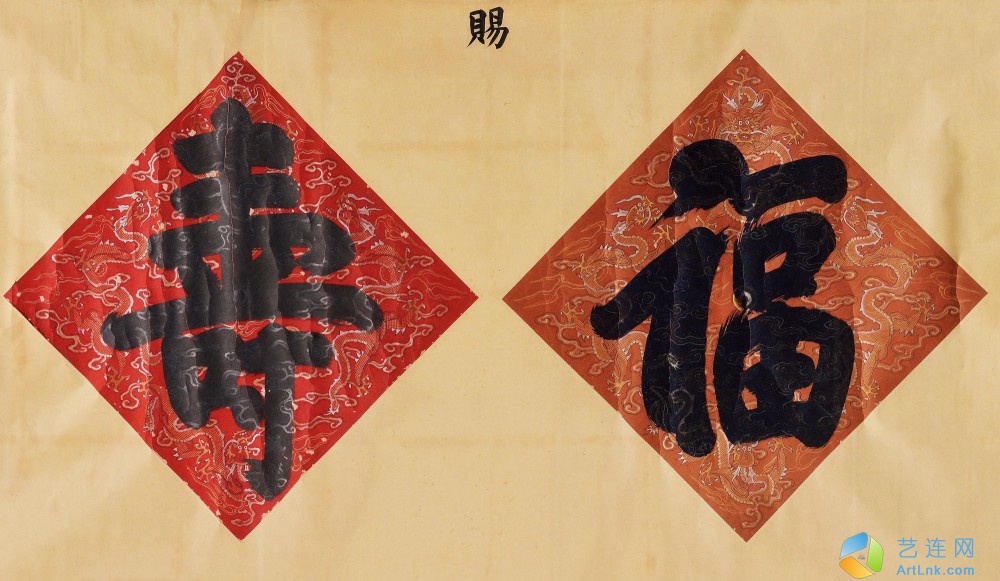 賜
福
壽
艺连网
ArtLnk.com